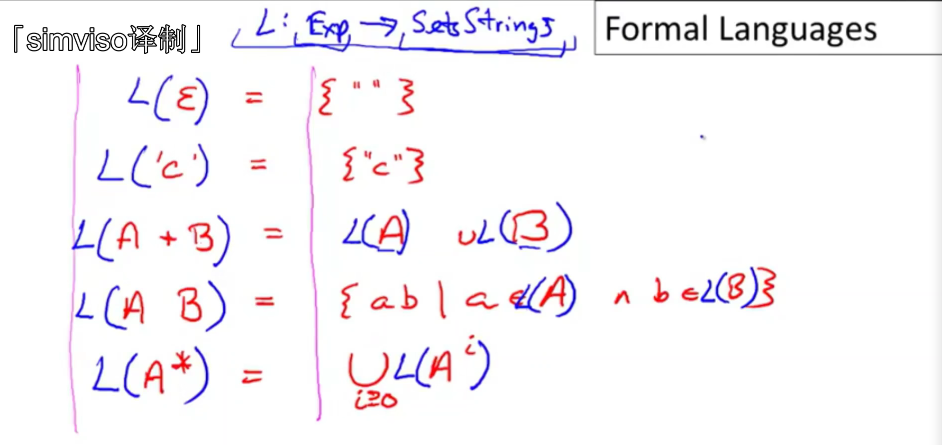 「simviso译制」
L: Exp → Sets Strings
Formal Languages
L(ε) = {" "}
L('c') = {"c"}
L(A + B) = L(A) ∪ L(B)
L(A B) = {ab | a ∈ L(A) ∧ b ∈ L(B)}
L(A*) = ⋃ L(Aⁱ)
i≥0